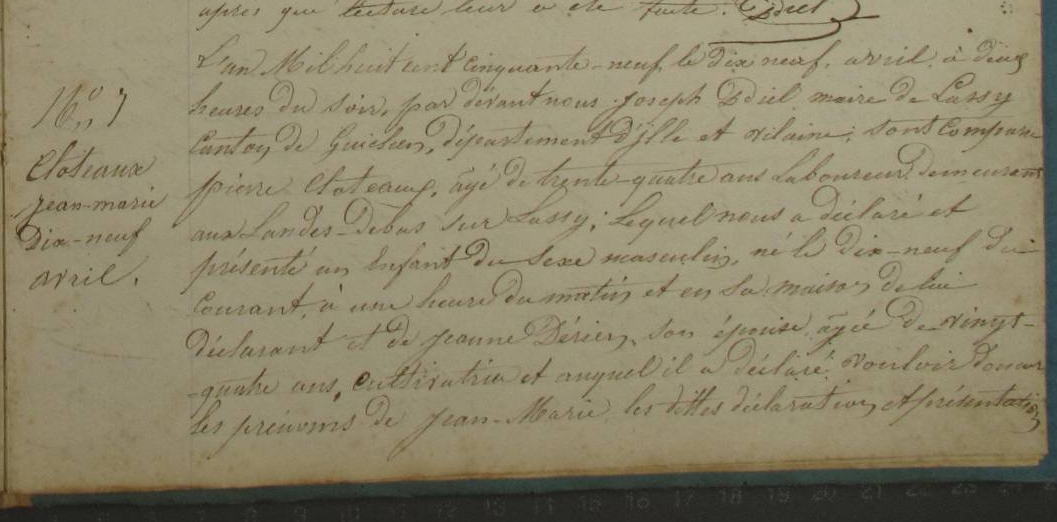 après que lecture leur a été faite. Ddiel
L'an Mil huit cent cinquante-neuf, le dix neuf, avril, à deux
heures du soir, par dévant nous Joseph Ddiel maire de Lassy
Canton de Guichen, département d'Ille et vilaine; sont comparu
pierre Cloteaux, âgé de trente-quatre ans Laboureur, demeurant
aux Landes-Debas sur Lassy; Lequel nous a déclaré et
présenté un Enfant du Sexe masculin, né le Dix-neuf du
Courant, à une heure du matin et en sa maison de lui
Déclarant et de jeanne Dérien, son épouse âgée de vingt-
-quatre ans, cultivatrice et auquel il a déclaré vouloir donner
les prénoms de jean-Marie les dittes déclaration et présentation
N° 7
Cloteaux
jean-marie
Dix-neuf
avril.